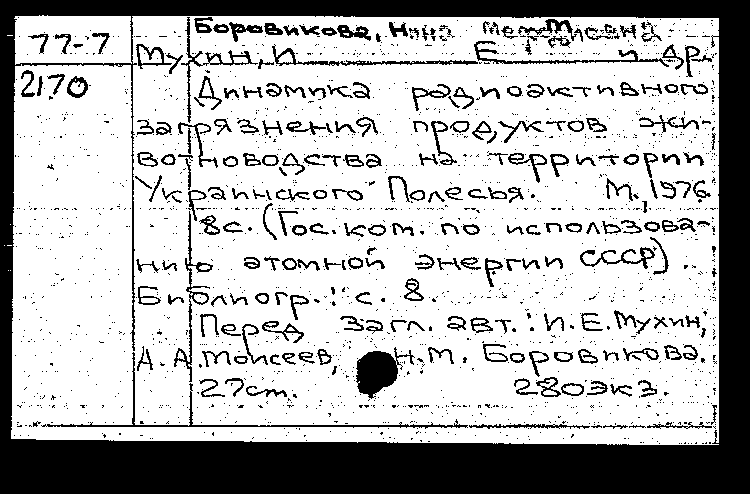 Боровикова, Нина
77-7
Мухин, И Е и др.
2170
Динамика радиоактивного
загрязнения продуктов жи-
вотноводства на территории
Украинского Полесья. М., 1976.
8с. (Гос. ком. по использова-
нию атомной энергии СССР).
Библиогр.: с. 8.
Перед загл. авт.: И.Е. Мухин,
А.А. Моисеев, Н.М. Боровикова.
27см. 280экз.